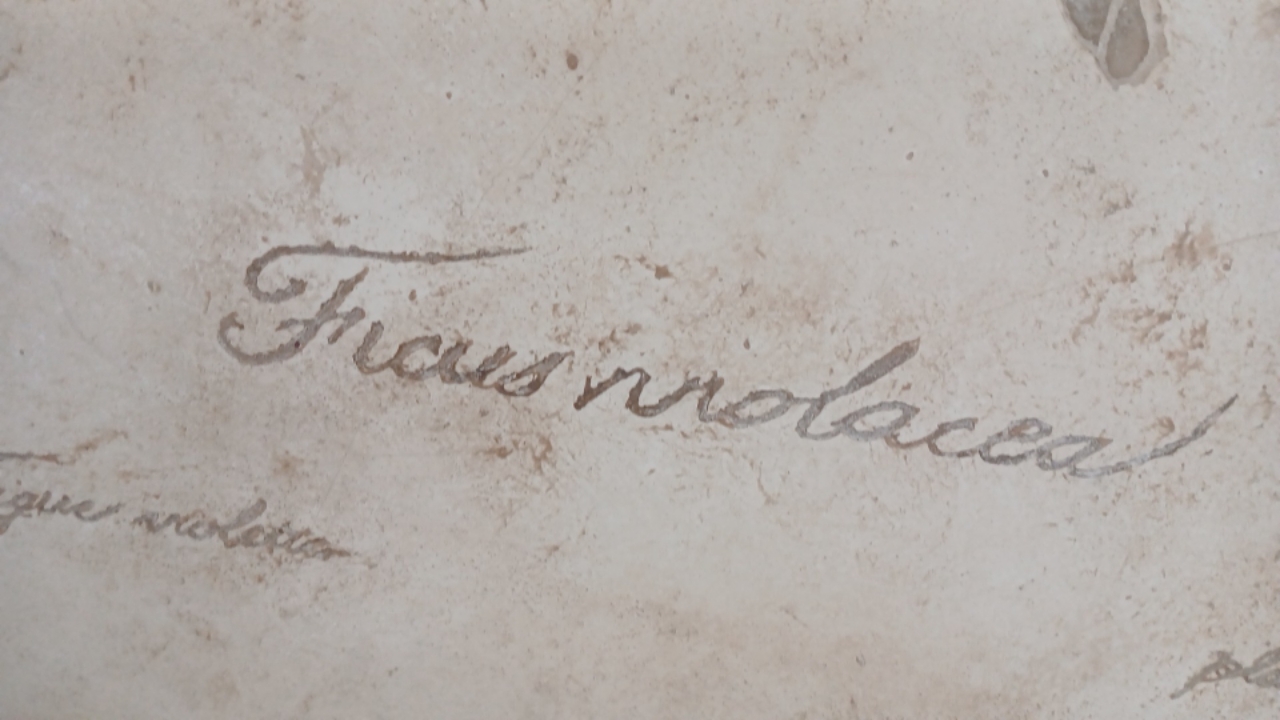 Ficus violacea
igue violette